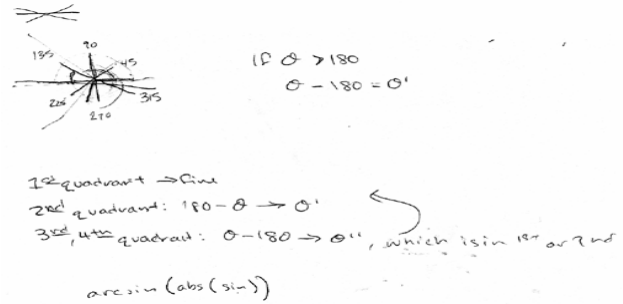 90
135
45
If θ > 180
θ - 180 = θ'
225
315
270
1st quadrant → fine
2nd quadrant: 180 - θ → θ'
3rd, 4th quadrant: θ - 180 → θ'', which is in 1st or 2nd
arcsin (abs (sin))